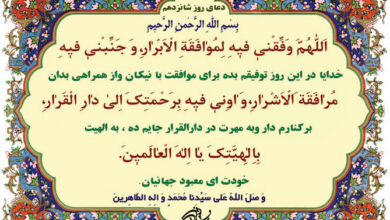 دعای روز شانزدهم
بِسْمِ اللّٰهِ الرَّحْمٰنِ الرَّحیٖمِ
اَللّٰهُمَّ وَفِّقْنیٖ فیٖهِ لِمُوٰافَقَةِ الْاَبْرٰارِ، وَ جَنِّبْنیٖ فیٖهِ
خدایا در این روز توفیقم بده برای موافقت با نیکان واز همراهی بدان
مُرٰافَقَةَ الْاَشْرٰارِ، وَ اٰوِنیٖ فیٖهِ بِرَحْمَتِکَ اِلیٰ دٰارِ الْقَرٰارِ،
برکنارم دار وبه مهرت در دارالقرار جایم ده ، به الهیت
بِاِلٰهِیَّتِکَ یٰا اِلٰهَ الْعٰالَمیٖنَ.
خودت ای معبود جهانیان.
وَ صَلَّ اللّٰهُ عَلیٰ سَیِّدِنٰا مُحَمَّدٍ وَ اٰلِهِ الطّٰاهِریٖنَ